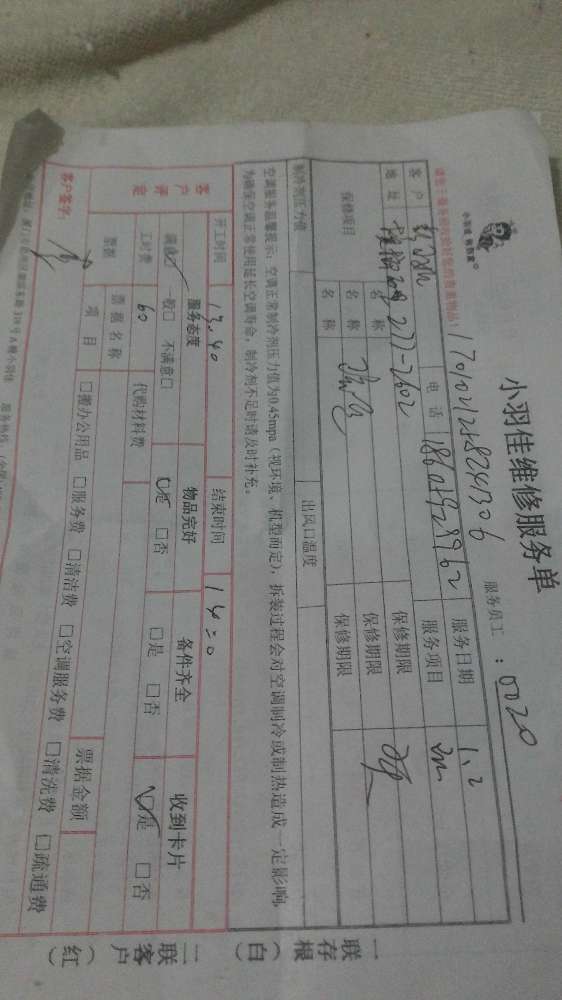 小羽佳维修服务单
服务员工：0020
170102125824306
请您于服务前收拾好您的贵重物品！
客户 电话 服务日期 1.2
地址 277-2602 服务项目
保修项目 名称 保修期限
名称 保修期限
名称 保修期限
制冷剂压力值 出风口温度
空调服务温馨提示：空调正常制冷剂压力值为0.45mpa（视环境、机型而定），拆装过程会对空调制冷或制热造成一定影响，
为确保空调正常使用延长空调寿命，制冷剂不足时请及时补充。
开工时间 13.40 结束时间 14:20
客户评定 服务态度 物品完好 备件齐全 收到卡片
满意 一般□ 不满意□ 是 □否 □是 □否 是 □否
工时费 60 代购材料费
票据 票据名称 票据金额
项目 □搬办公用品 □服务费 □清洁费 □空调服务费 □清洗费 □疏通费
客户签字：
一联存根（白）
二联客户（红）